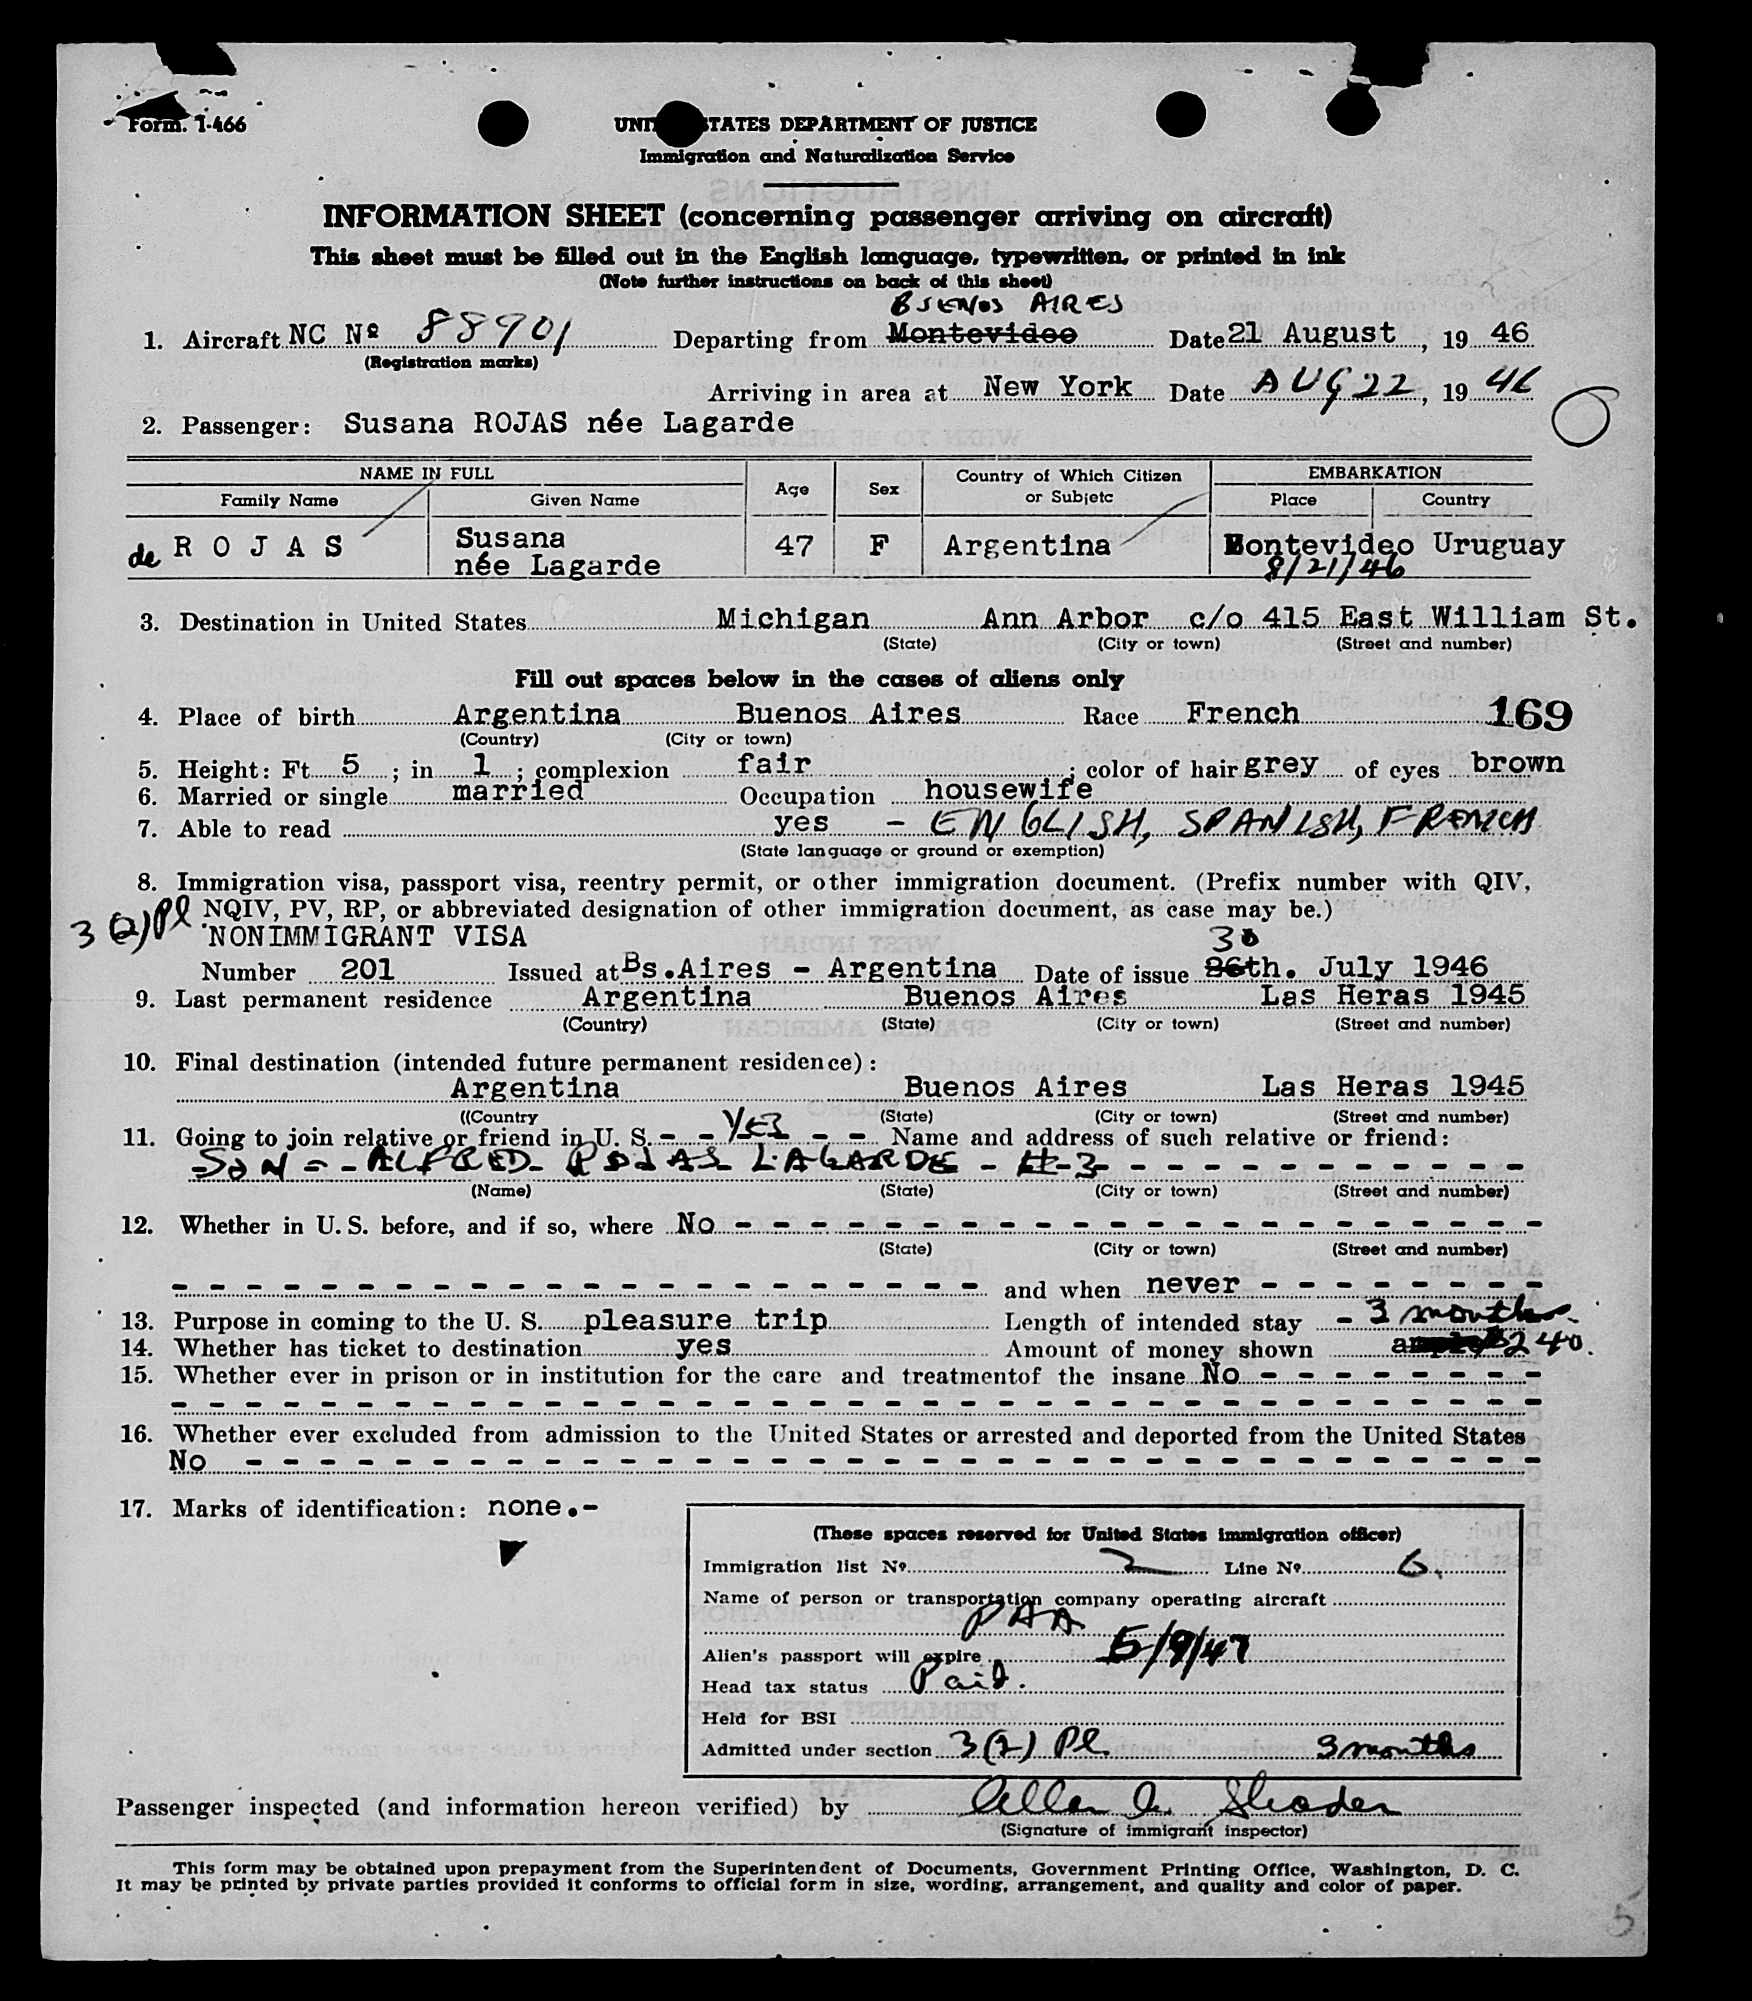 Form. I-466
UNITED STATES DEPARTMENT OF JUSTICE
Immigration and Naturalization Service
INFORMATION SHEET (concerning passenger arriving on aircraft)
This sheet must be filled out in the English language, typewritten, or printed in ink
(Note further instructions on back of this sheet)
BUENOS AIRES
1. Aircraft NC Nº 88901 Departing from Montevideo Date 21 August, 19 46
(Registration marks)
Arriving in area at New York Date AUG 22, 19 46
2. Passenger: Susana ROJAS née Lagarde
NAME IN FULL Age Sex Country of Which Citizen or Subjetc EMBARKATION
Family Name Given Name Place Country
de ROJAS Susana née Lagarde 47 F Argentina Montevideo Uruguay
8/21/46
3. Destination in United States Michigan Ann Arbor c/o 415 East William St.
(State) (City or town) (Street and number)
Fill out spaces below in the cases of aliens only
4. Place of birth Argentina Buenos Aires Race French 169
(Country) (City or town)
5. Height: Ft 5 ; in 1 ; complexion fair ; color of hair grey of eyes brown
6. Married or single married Occupation housewife
7. Able to read yes - ENGLISH, SPANISH, FRENCH
(State language or ground or exemption)
8. Immigration visa, passport visa, reentry permit, or other immigration document. (Prefix number with QIV,
3(2) Pl NQIV, PV, RP, or abbreviated designation of other immigration document, as case may be.)
NONIMMIGRANT VISA 30
Number 201 Issued at Bs.Aires - Argentina Date of issue 26th. July 1946
9. Last permanent residence Argentina Buenos Aires Las Heras 1945
(Country) (State) (City or town) (Street and number)
10. Final destination (intended future permanent residence):
Argentina Buenos Aires Las Heras 1945
((Country (State) (City or town) (Street and number)
11. Going to join relative or friend in U. S. - - YES - - Name and address of such relative or friend:
SON - - ALFRED ROJAS LAGARDE - #-3 - - - - - - - - - - - -
(Name) (State) (City or town) (Street and number)
12. Whether in U. S. before, and if so, where No - - - - - - - - - - - - - - - - - - - - - -
(State) (City or town) (Street and number)
- - - - - - - - - - - - - - - - - - - - - - and when never - - - - - - - -
13. Purpose in coming to the U. S. pleasure trip Length of intended stay - 3 months.
14. Whether has ticket to destination yes Amount of money shown $240.
15. Whether ever in prison or in institution for the care and treatmentof the insane No - - - - - - - -
- - - - - - - - - - - - - - - - - - - - - - - - - - - - - - - - - - - - -
16. Whether ever excluded from admission to the United States or arrested and deported from the United States
No - - - - - - - - - - - - - - - - - - - - - - - - - - - - - - - - - - -
17. Marks of identification: none.-
(These spaces reserved for United States immigration officer)
Immigration list Nº 2 Line Nº 6.
Name of person or transportation company operating aircraft
PAA
Alien's passport will expire 5/9/47
Head tax status Paid.
Held for BSI
Admitted under section 3(2) Pl. 3 months
Passenger inspected (and information hereon verified) by Allen A. Shader
(Signature of immigrant inspector)
This form may be obtained upon prepayment from the Superintendent of Documents, Government Printing Office, Washington, D. C.
It may be printed by private parties provided it conforms to official form in size, wording, arrangement, and quality and color of paper.
5